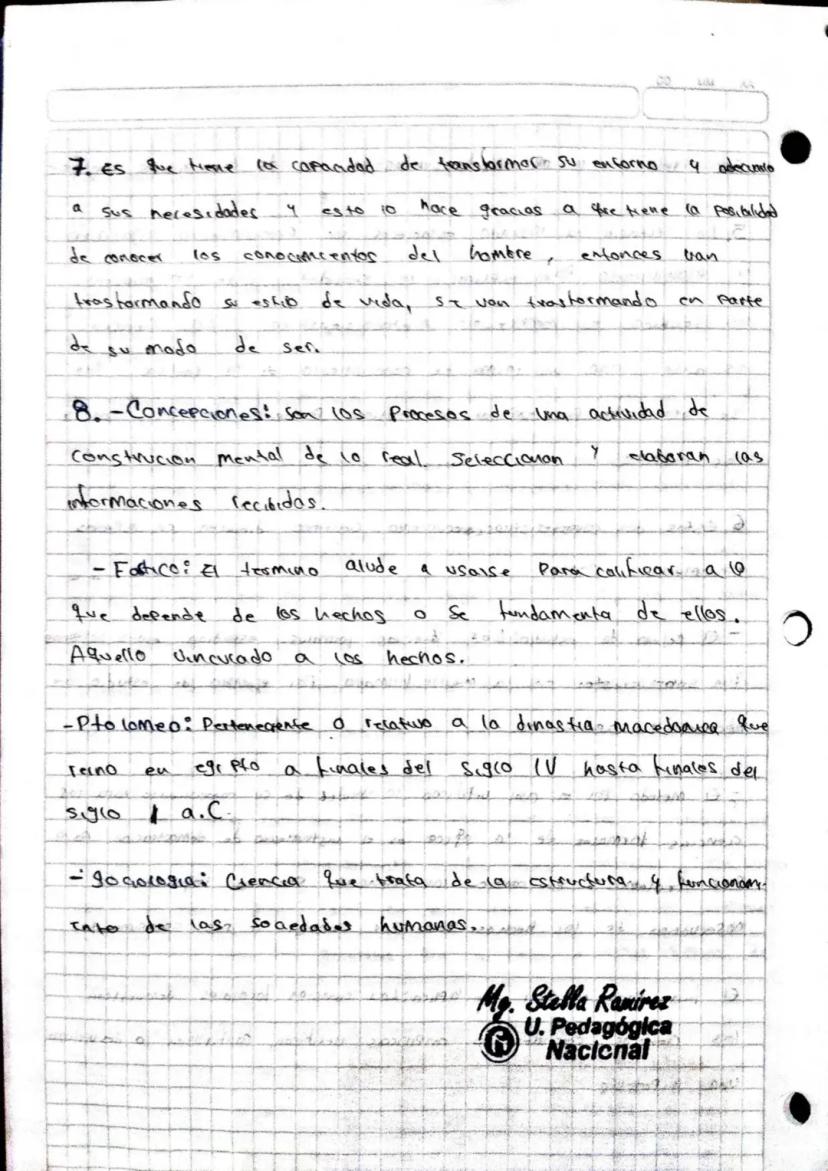 7. Es que tiene la capacidad de transformar su entorno y adecuarlo
a sus necesidades y esto lo hace gracias a que tiene la posibilidad
de conocer los conocimientos del hombre, entonces van
trasformando su estilo de vida, se van trasformando en parte
de su modo de ser.
8. - Concepciones: son los procesos de una actividad de
construcion mental de lo real. Seleccionan y elaboran las
informaciones recibidas.
- Factico: El termino alude a usarse para calificar a lo
que depende de los hechos o se fundamenta de ellos.
Aquello vinculado a los hechos.
- Ptolomeo: Perteneciente o relativo a la dinastia macedonica que
reino en egipto a finales del siglo IV hasta finales del
siglo I a.C.
- Sociologia: Ciencia que trata de la estructura y funcionam-
iento de las sociedades humanas.
Mg. Stella Ramírez
U. Pedagógica
Nacional